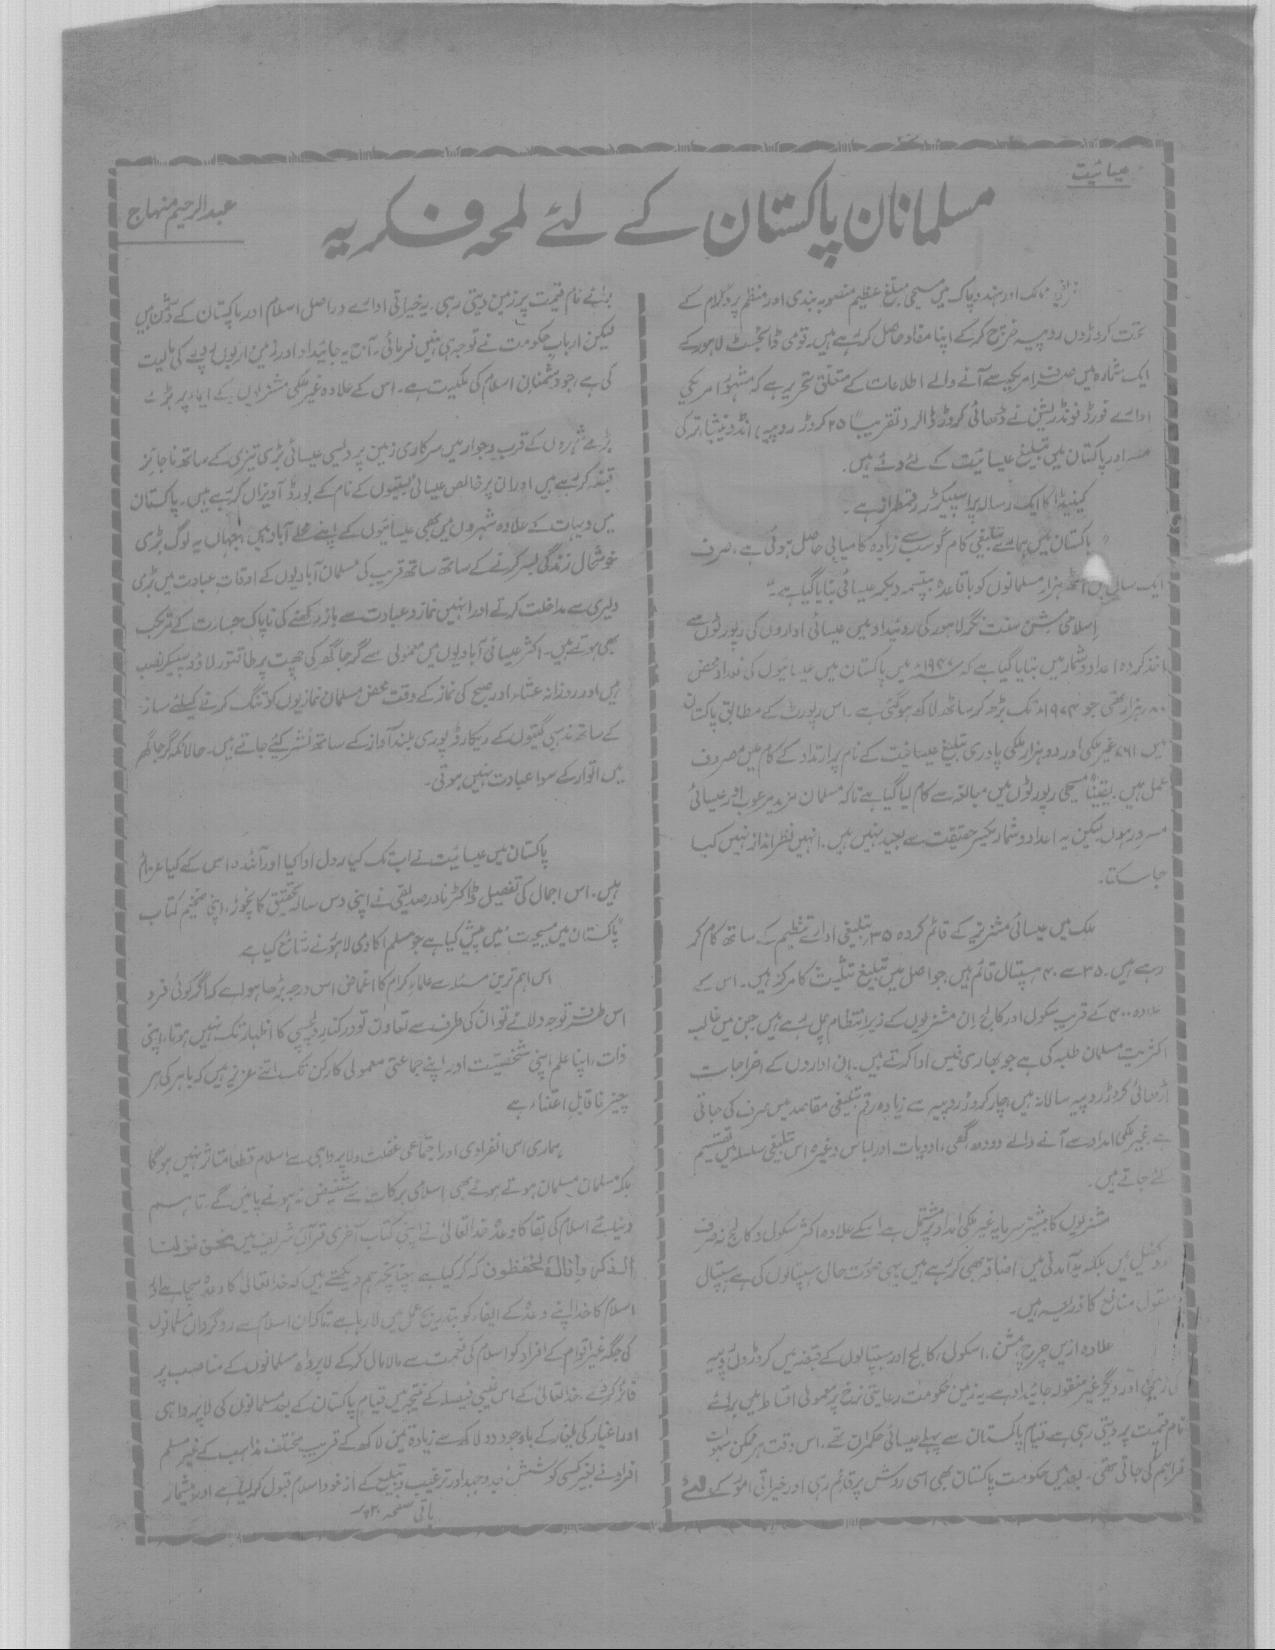 عیسائیت
مسلمانان پاکستان کے لئے لمحہ فکریہ
عبدالرحیم منہاج
ممالک اور ہند و پاک میں مسیحی مبلغ عظیم منصوبہ بندی اور منظم پروگرام کے
تحت کروڑوں روپیہ خرچ کرکے اپنا مفاد حاصل کر رہے ہیں۔ قومی ڈائجسٹ لاہور کے
ایک شمارہ میں صرف امریکہ سے آنے والے اطلاعات کے متعلق تحریر ہے کہ مشہور امریکی
ادارے فورڈ فونڈریشن نے ڈھائی کروڑ ڈالر (تقریباً ۲۵ کروڑ روپیہ) انڈونیشیا، ترکی
مصر اور پاکستان میں تبلیغ عیسائیت کے لئے دئے ہیں۔
کینیڈا کا ایک رسالہ پراسپیکٹر رقمطراز ہے۔
" پاکستان میں ہمارے تبلیغی کام کو سب سے زیادہ کامیابی حاصل ہوئی ہے، صرف
ایک سال میں آٹھ ہزار مسلمانوں کو باقاعدہ بپتسمہ دیکر عیسائی بنایا گیا ہے۔"
اسلامی مشن سنت نگر لاہور کی روئیداد میں عیسائی اداروں کی رپورٹوں سے
اخذ کردہ اعداد و شمار میں بتایا گیا ہے کہ ۱۹۴۷ء میں پاکستان میں عیسائیوں کی تعداد محض
۸۰ ہزار تھی جو ۱۹۷۴ء تک بڑھ کر ساٹھ لاکھ ہوگئی ہے۔ اس رپورٹ کے مطابق پاکستان
میں ۷۶۱ غیر ملکی اور دو ہزار ملکی پادری تبلیغ عیسائیت کے نام پر ارتداد کے کام میں مصروف
عمل ہیں۔ یقیناً مسیحی رپورٹوں میں مبالغہ سے کام لیا گیا ہے تاکہ مسلمان مزید مرعوب اور عیسائی
مسرور ہوں لیکن یہ اعداد و شمار یکسر حقیقت سے بعید نہیں ہیں۔ انہیں نظر انداز نہیں کیا
جا سکتا۔
ملک میں عیسائی مشنریز کے قائم کردہ ۳۵ تبلیغی ادارے تنظیم کے ساتھ کام کر
رہے ہیں۔ ۳۵ سے ۴۰ ہسپتال قائم ہیں، جو اصل میں تبلیغ تثلیث کا مرکز ہیں۔ اس کے
علاوہ ۴۰۰ کے قریب سکول اور کالج ان مشنریوں کے زیر انتظام چل رہے ہیں جن میں غالب
اکثریت مسلمان طلبہ کی ہے جو بھاری فیس ادا کرتے ہیں۔ ان اداروں کے اخراجات
اڑھائی کروڑ روپیہ سالانہ ہیں، چار کروڑ روپیہ سے زیادہ رقم تبلیغی مقاصد میں صرف کی جاتی
ہے، غیر ملکی امداد سے آنے والے دودھ گھی، ادویات اور لباس وغیرہ اس تبلیغی سلسلہ میں تقسیم
کئے جاتے ہیں۔
مشنریوں کا بیشتر سرمایہ غیر ملکی امداد پر مشتمل ہے اسکے علاوہ اکثر سکول و کالج نہ صرف
خود کفیل ہیں بلکہ یہ آمدنی میں اضافہ بھی کر رہے ہیں یہی صورت حال ہسپتالوں کی ہے ہسپتال
معقول منافع کا ذریعہ ہیں۔
علاوہ ازیں چرچ، مشن، اسکول، کالج اور ہسپتالوں کے قبضہ میں کروڑوں روپیہ
کی زمین اور دیگر غیر منقولہ جائیداد ہے یہ زمین حکومت رعایتی نرخ پر معمولی اقساط میں برائے
نام قیمت پر دیتی رہی ہے قیام پاکستان سے پہلے عیسائی حکمران تھے، اس وقت ہر ممکن سہولت
فراہم کی جاتی تھی۔ بعد میں حکومت پاکستان بھی اسی روش پر قائم رہی اور خیراتی امور کے لئے
برائے نام قیمت پر زمین دیتی رہی۔ یہ خیراتی ادارے دراصل اسلام اور پاکستان کے دشمن ہیں
لیکن ارباب حکومت نے توجہ ہی نہیں فرمائی۔ آج یہ جائیداد اور زمین اربوں روپے کی مالیت
کی ہے، جو دشمنانِ اسلام کی ملکیت ہے۔ اس کے علاوہ غیر ملکی مشنریوں کے ایماء پر بڑے
بڑے شہروں کے قرب و جوار میں سرکاری زمین پر دیسی عیسائی بڑی تیزی کے ساتھ ناجائز
قبضہ کر رہے ہیں اور ان پر خالص عیسائی بستیوں کے نام کے بورڈ آویزاں کر رہے ہیں۔ پاکستان
میں دیہات کے علاوہ شہروں میں بھی عیسائیوں کے اپنے محلے آباد ہیں، جہاں یہ لوگ بڑی
خوشحال زندگی بسر کرنے کے ساتھ ساتھ قریب کی مسلمان آبادیوں کے اوقات عبادت میں بڑی
دلیری سے مداخلت کرتے اور انہیں نماز و عبادت سے باز رکھنے کی ناپاک جسارت کے مرتکب
بھی ہوتے ہیں۔ اکثر عیسائی آبادیوں میں معمولی سے گرجا گھر کی چھت پر طاقتور لاؤڈ سپیکر نصب
ہیں اور روزانہ عشاء اور صبح کی نماز کے وقت محض مسلمان نمازیوں کو تنگ کرنے کیلئے ساز
کے ساتھ مذہبی گیتوں کے ریکارڈ پوری بلند آواز کے ساتھ نشر کئے جاتے ہیں۔ حالانکہ گرجا گھر
میں اتوار کے سوا عبادت نہیں ہوتی۔
پاکستان میں عیسائیت نے اب تک کیا رول ادا کیا اور آئندہ اس کے کیا عزائم
ہیں۔ اس اجمال کی تفصیل ڈاکٹر نادر صدیقی نے اپنی دس سالہ تحقیق کا نچوڑ، اپنی ضخیم کتاب
"پاکستان میں مسیحیت" میں پیش کیا ہے جو مسلم اکادمی لاہور نے شائع کیا ہے
اس اہم ترین مسئلہ سے علماء کرام کا اغماض اس درجہ بڑھا ہوا ہے کہ اگر کوئی فرد
اس طرف توجہ دلائے تو ان کی طرف سے تعاون تو درکنار دلچسپی کا اظہار تک نہیں ہوتا، اپنی
ذات، اپنا علم اپنی شخصیت اور اپنے جماعتی معمولی کارکن تک اتنے عزیز ہیں کہ باہر کی ہر
چیز ناقابل اعتناء ہے
ہماری اس انفرادی اور اجتماعی غفلت و لاپرواہی سے اسلام قطعاً متاثر نہیں ہوگا
بلکہ مسلمان، مسلمان ہوتے ہوئے بھی اسلامی برکات سے مستفیض نہ ہونے پائیں گے۔ تاہم
دنیائے اسلام کی بقا کا وعدہ خدا تعالیٰ نے اپنی کتاب آخری قرآن شریف میں نحن نزلنا
الذکر وانا لہ لحفظون کہہ کر کیا ہے چنانچہ ہم دیکھتے ہیں کہ خدا تعالیٰ کا وعدہ سچا ہے اور
اسلام کا خدا اپنے وعدہ کے ایفاء کو بتدریج عمل میں لا رہا ہے تاکہ ان اسلام سے روگرداں مسلمانوں
کی جگہ غیر اقوام کے افراد کو اسلام کی نعمت سے مالا مال کرکے لاپرواہ مسلمانوں کے مناصب پر
فائز کر دے، خدا تعالیٰ کے اس غیبی فیصلہ کے نتیجہ میں قیام پاکستان کے بعد مسلمانوں کی لاپرواہی
اور اغیار کی یلغار کے باوجود دو لاکھ سے زیادہ تین لاکھ کے قریب مختلف مذاہب کے غیر مسلم
افراد نے بغیر کسی کوشش جدوجہد اور ترغیب و تبلیغ کے از خود اسلام قبول کر لیا ہے اور بیشمار
باقی صفحہ ۳۰ پر